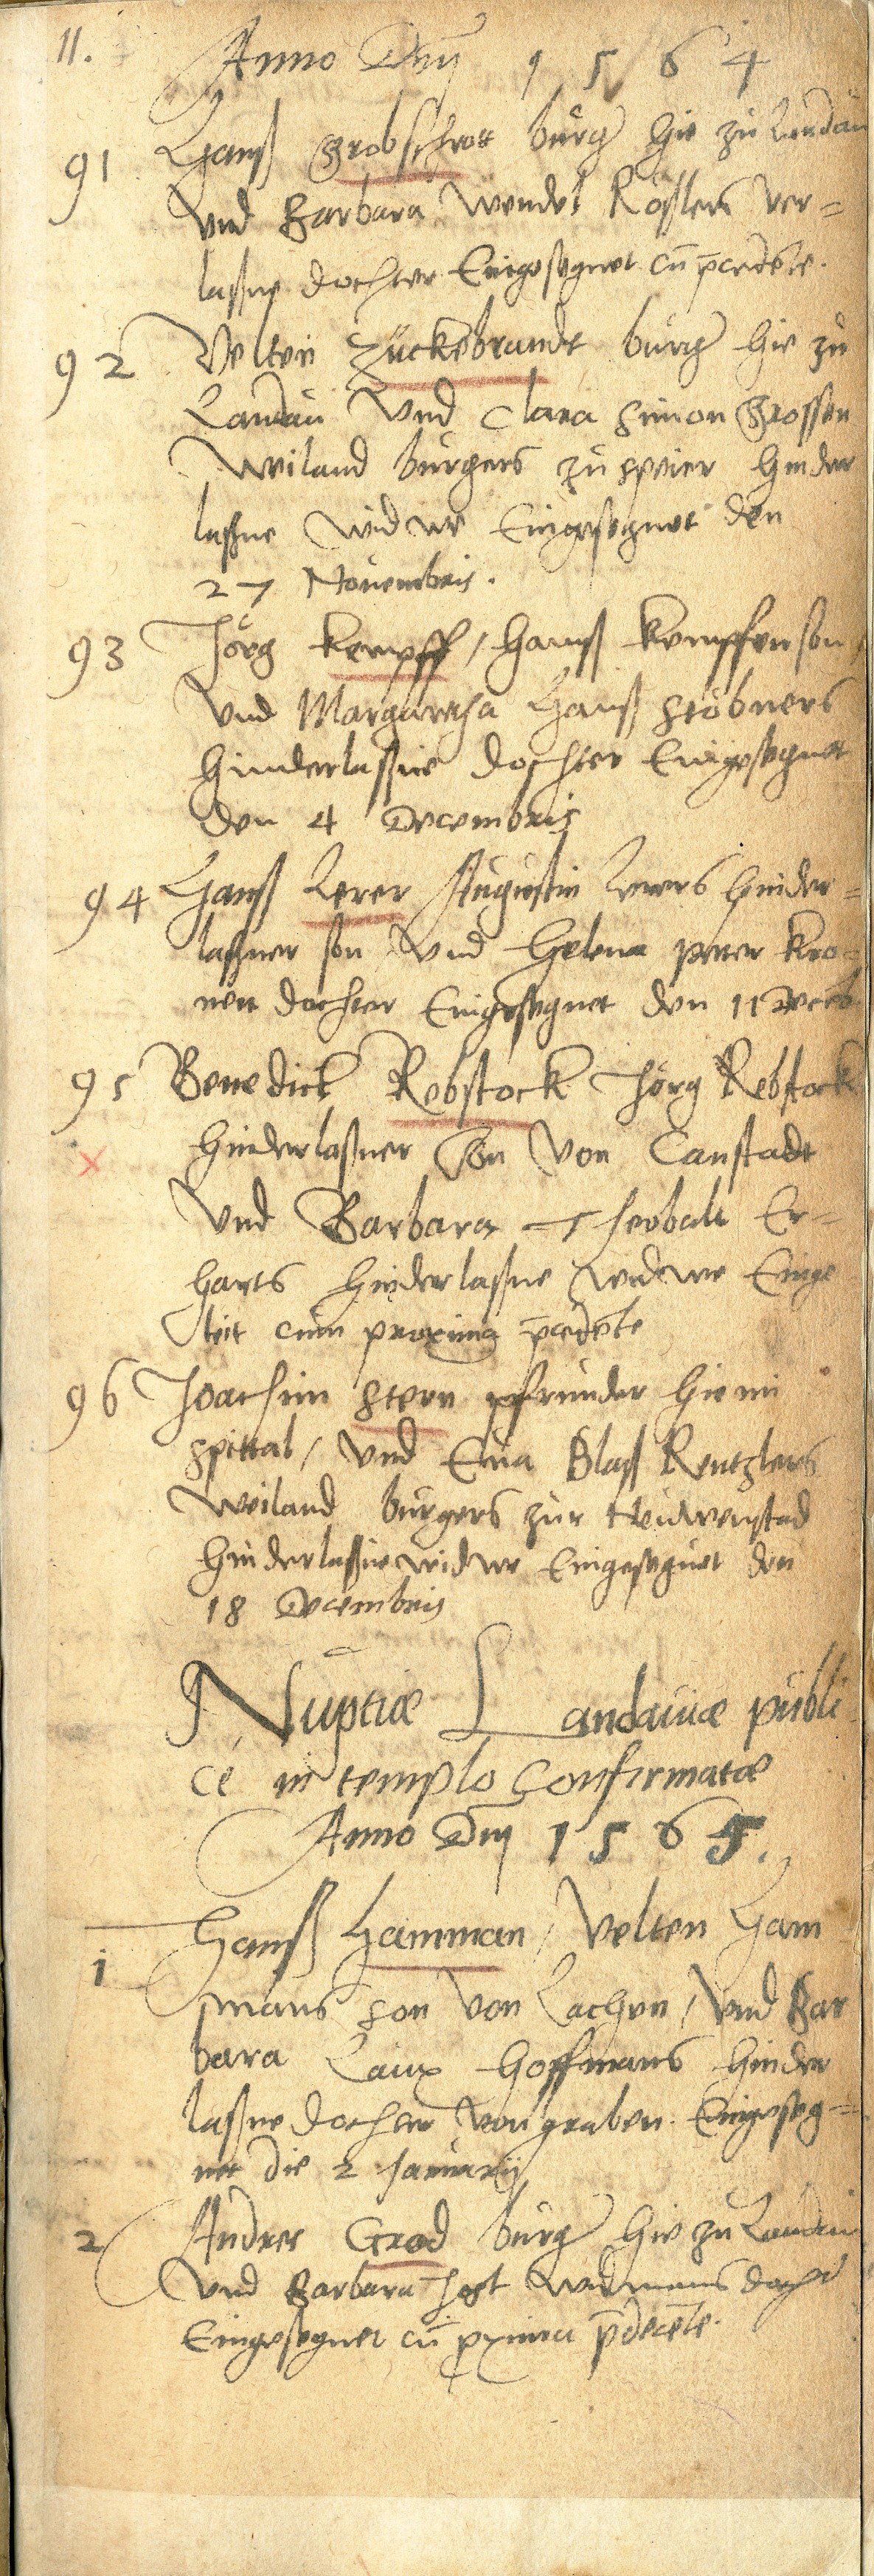 11.
Anno Dnj 1 5 6 4
91 Hanß Grobschrott burger hie zu Landau
und Barbara Wendel Kößlers ver=
laßne dochter Eingesegnet cū p̄cedēte.
92 Velten Zuckebrandt burger hie zu
Landau und Clara Simon Grossen
Weiland burgers zu speier hinder
laßne widwe Eingesegnet den
27 Novembris.
93 Jörg Kempff / Hanß Kempffen son /
und Margaretha Hanß Stöbners
hinderlaßne dochter Eingesegnet
den 4 Decembris
94 Hanß Lerer Augustin Lerers hinder=
laßner son / und Helena peter Kro=
nen dochter Eingesegnet den 11 Decēb
95 Benedict Rebstock Jörg Rebstock
hinderlaßner Son von Canstadt
und Barbara Theobalt Er=
harts hinderlaßne widwe Einge
leit cum proxima p̄cedēte
96 Joachim Stern pfründer hie im
spittal / und Eua Blaß Rentzlers
Weiland burgers zur Neuwenstad
hinderlaßne widwe Eingesegnet den
18 Decembris
Nuptiæ Landauiæ publi
cé in templo Confirmatæ
Anno Dnj 1 5 6 5.
1 Hanß Hamman / Velten Ham
mans son von Lachen / und Bar
bara Laux Hoffmans hinder
laßne dochter von graben. Eingeseg=
net die 2 Januarij
2 Andres Grad burger hie zu Landau
und Barbara Jost Widmans dochter
Eingesegnet cū pxima p̄decēte.